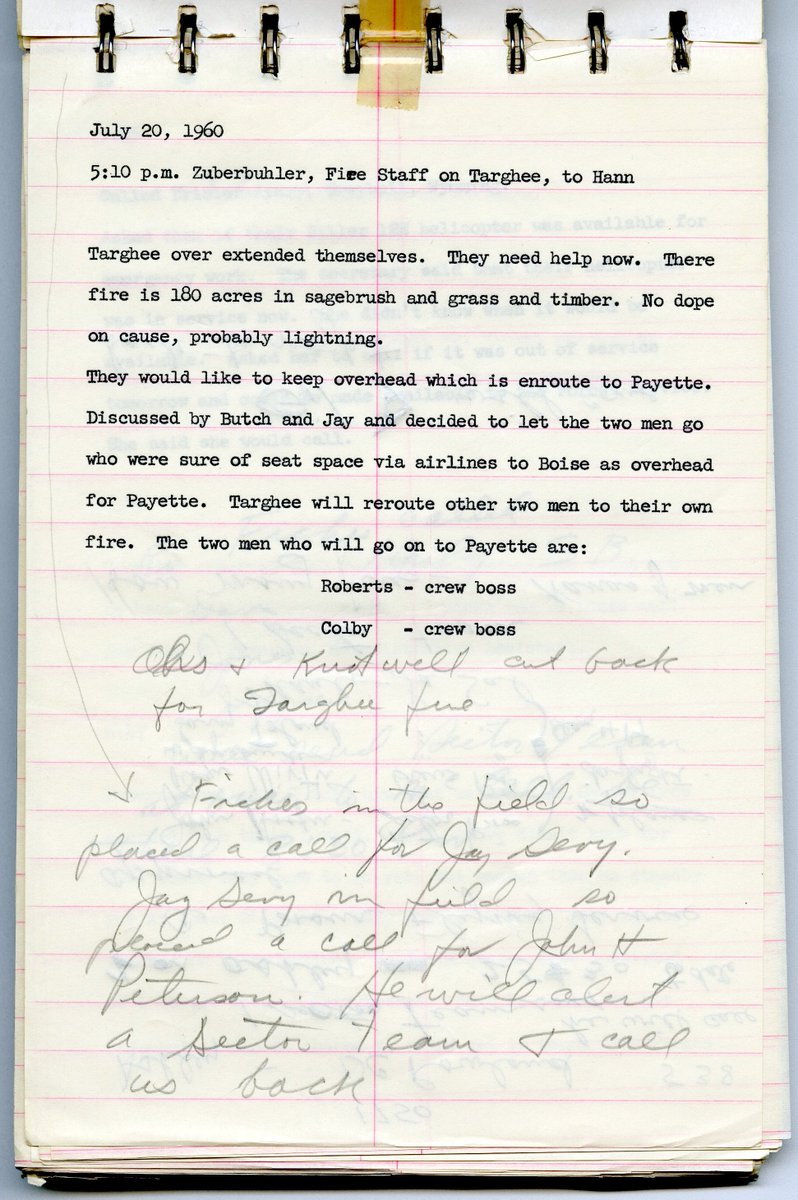 July 20, 1960
5:10 p.m. Zuberbuhler, Fire Staff on Targhee, to Hann
Targhee over extended themselves. They need help now. There
fire is 180 acres in sagebrush and grass and timber. No dope
on cause, probably lightning.
They would like to keep overhead which is enroute to Payette.
Discussed by Butch and Jay and decided to let the two men go
who were sure of seat space via airlines to Boise as overhead
for Payette. Targhee will reroute other two men to their own
fire. The two men who will go on to Payette are:
Roberts - crew boss
Colby - crew boss
& cut back
for Targhee fire
in the field so
placed a call for Jay Sevy.
Jay Sevy in field so
placed a call for John H
Peterson. He will alert
a Sector Team & call
us back